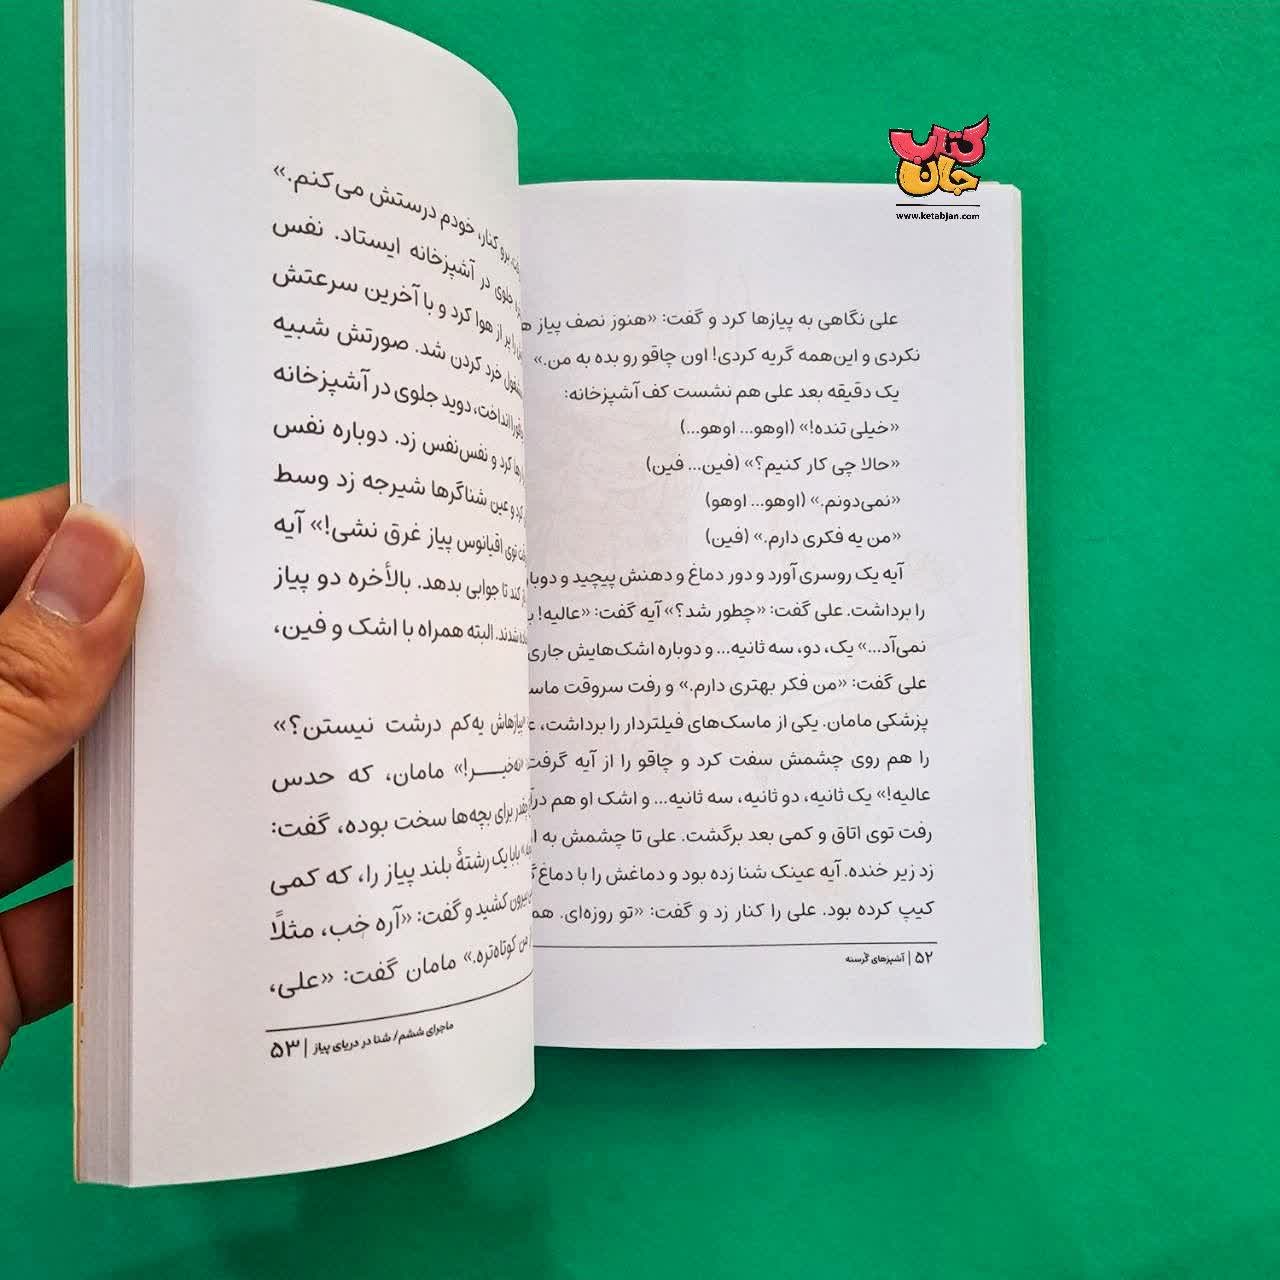 کتاب
جان
www.ketabjan.com
علی نگاهی به پیازها کرد و گفت: «هنوز نصف پیاز
نکردی و این‌همه گریه کردی! اون چاقو رو بده به من.»
یک دقیقه بعد علی هم نشست کف آشپزخانه:
«خیلی تنده!» (اوهو... اوهو...)
«حالا چی کار کنیم؟» (فین... فین)
«نمی‌دونم.» (اوهو... اوهو)
«من یه فکری دارم.» (فین)
آیه یک روسری آورد و دور دماغ و دهنش پیچید و
را برداشت. علی گفت: «چطور شد؟» آیه گفت: «عالیه!
نمی‌آد...» یک، دو، سه ثانیه... و دوباره اشک‌هایش جاری
علی گفت: «من فکر بهتری دارم.» و رفت سروقت
پزشکی مامان. یکی از ماسک‌های فیلتردار را برداشت،
را هم روی چشمش سفت کرد و چاقو را از آیه
عالیه!» یک ثانیه، دو ثانیه، سه ثانیه... و اشک او هم
رفت توی اتاق و کمی بعد برگشت. علی تا چشمش به
زد زیر خنده. آیه عینک شنا زده بود و دماغش را با
کیپ کرده بود. علی را کنار زد و گفت: «تو روزه‌ای.
۵۲ | آشپزهای گرسنه
برو کنار، خودم درستش می‌کنم.»
جلوی در آشپزخانه ایستاد. نفس
را پر از هوا کرد و با آخرین سرعتش
مشغول خرد کردن شد. صورتش شبیه
انداخت، دوید جلوی در آشپزخانه
کرد و نفس‌نفس زد. دوباره نفس
و عین شناگرها شیرجه زد وسط
توی اقیانوس پیاز غرق نشی!» آیه
کند تا جوابی بدهد. بالأخره دو پیاز
شدند. البته همراه با اشک و فین،
«پیازهاش یه‌کم درشت نیستن؟»
مامان، که حدس
برای بچه‌ها سخت بوده، گفت:
بابا یک رشتهٔ بلند پیاز را، که کمی
بیرون کشید و گفت: «آره خب، مثلاً
من کوتاه‌تره.» مامان گفت: «علی،
ماجرای ششم/ شنا در دریای پیاز | ۵۳